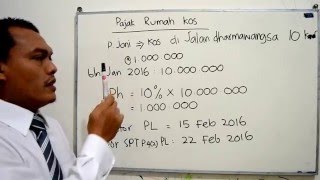 Pajak Rumah kos
P Joni ⇒ Kos di Jalan dharmawangsa 10
@ 1.000.000
Jan 2016 : 10.000.000
Ph = 10% x 10.000.000
= 1.000.000
PL = 15 Feb 2016
SPT PL : 22 Feb 2016